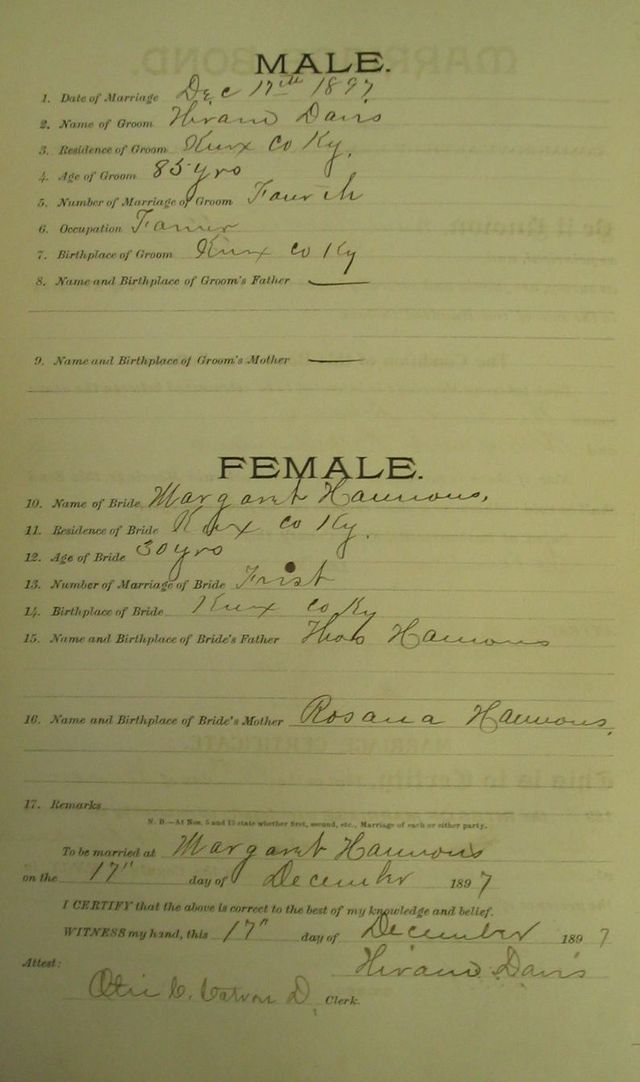 MALE.
1. Date of Marriage Dec 17th 1897
2. Name of Groom Hiram Davis
3. Residence of Groom Knox Co Ky.
4. Age of Groom 85 yrs
5. Number of Marriage of Groom Fourth
6. Occupation Farmer
7. Birthplace of Groom Knox Co Ky
8. Name and Birthplace of Groom's Father —
9. Name and Birthplace of Groom's Mother —
FEMALE.
10. Name of Bride Margaret Hammons.
11. Residence of Bride Knox Co Ky.
12. Age of Bride 30 yrs
13. Number of Marriage of Bride First
14. Birthplace of Bride Knox Co Ky
15. Name and Birthplace of Bride's Father Thos Hammons
16. Name and Birthplace of Bride's Mother Rosana Hammons.
17. Remarks
N. B.—At Nos. 5 and 13 state whether first, second, etc., Marriage of each or either party.
To be married at Margaret Hammons
on the 17" day of December 1897
I CERTIFY that the above is correct to the best of my knowledge and belief.
WITNESS my hand, this 17" day of December 1897
Hiram Davis
Attest:
Clerk.